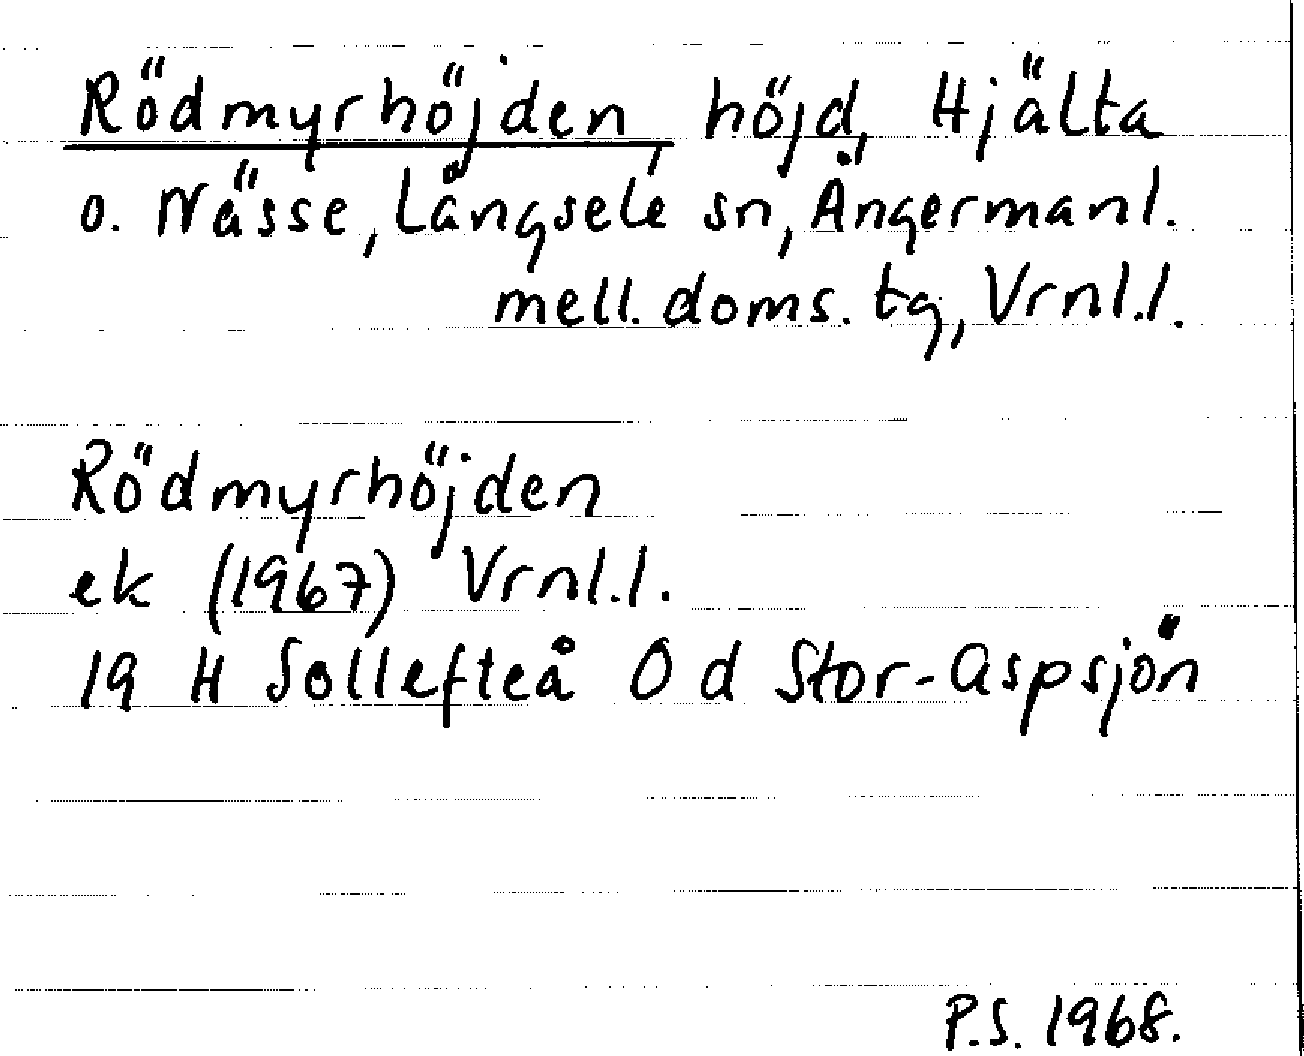 Rödmyrhöjden, höjd, Hjälta
o. Nässe, Långsele sn, Ångermanl.
mell. doms. tg, Vrnl.l.
Rödmyrhöjden
ek (1967) Vrnl.l.
19 H Sollefteå O d Stor-Aspsjön
P.S. 1968.